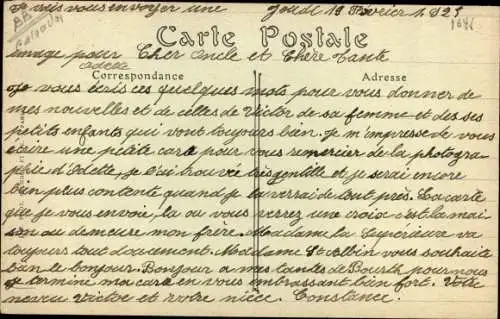 Je vais vous envoyer une Jeudi 19 Février 1925
Carte Postale
image pour Cher Oncle et Chère Tante
Adèle
Correspondance Adresse
Je vous écris ces quelques mots pour vous donner de
mes nouvelles et de celles de Victor de sa femme et des ses
petits enfants qui vont toujours bien. Je m'impresse de vous
écrire une petite carte pour vous remercier de la photogra-
phie d'Odette, je l'ai trouvée très gentille et je serai encore
bien plus contente quand je la verrai de tout près. La carte
que je vous envoi, la ou vous verrez une croix c'est la mai-
son ou demeure mon frère. Madame la Supérieure va
toujours tout doucement. Madame St Albin vous souhaite
bien le bonjour. Bonjour a mes tantes de pour nous
Je termine ma carte en vous embrassant bien fort. Votre
neveu Victor et votre nièce. Constance.